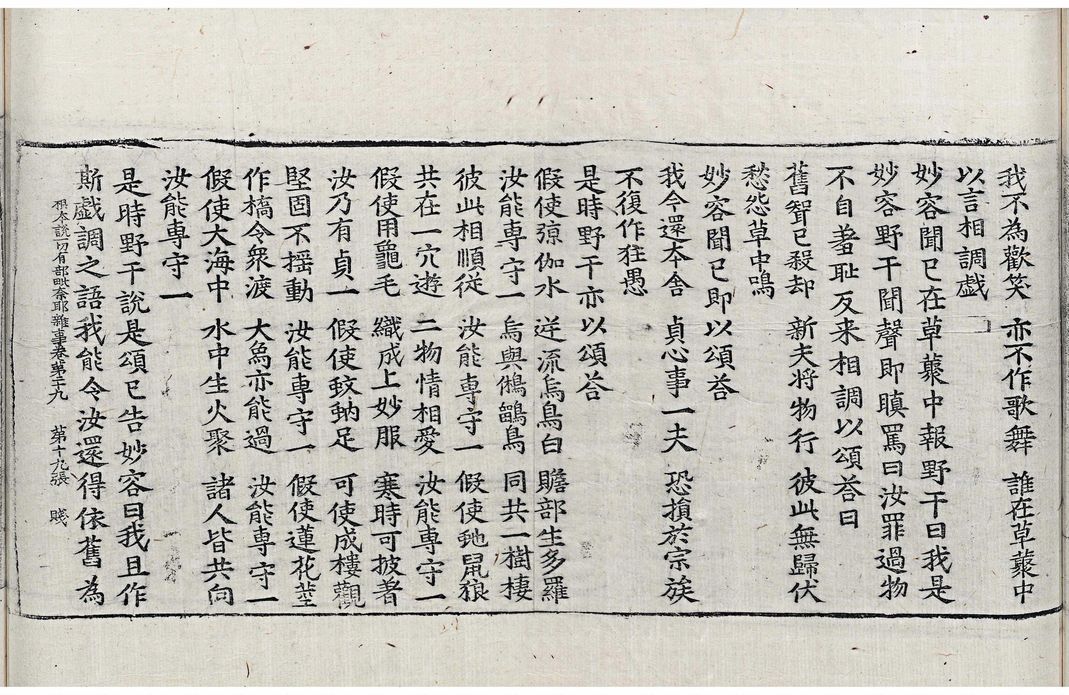 我不為歡笑　亦不作歌舞　誰在草藂中
以言相調戲
妙容聞已在草藂中報野干曰我是
妙容野干聞聲即瞋罵曰汝罪過物
不自羞恥反来相調以頌荅曰
舊智已殺却　新夫将物行　彼此無歸伏
愁怨草中鳴
妙容聞已即以頌荅
我今還本舍　貞心事一夫　恐損於宗族
不復作狂愚
是時野干亦以頌荅
假使弶伽水　逆流烏鳥白　贍部生多羅
汝能専守一　烏與鵂鶹鳥　同共一樹棲
彼此相順従　汝能専守一　假使虵鼠狼
共在一穴遊　二物情相愛　汝能専守一
假使用龜毛　織成上妙服　寒時可披著
汝乃有貞一　假使蚊蚋足　可使成樓觀
堅固不揺動　汝能専守一　假使蓮花莖
作橋令衆渡　大為亦能過　汝能専守一
假使大海中　水中生火聚　諸人皆共向
汝能専守一
是時野干說是頌已告妙容曰我且作
斯戲調之語我能令汝還得依舊為
根本說一切有部毗奈耶雜事卷第二十九　第十九張　賤